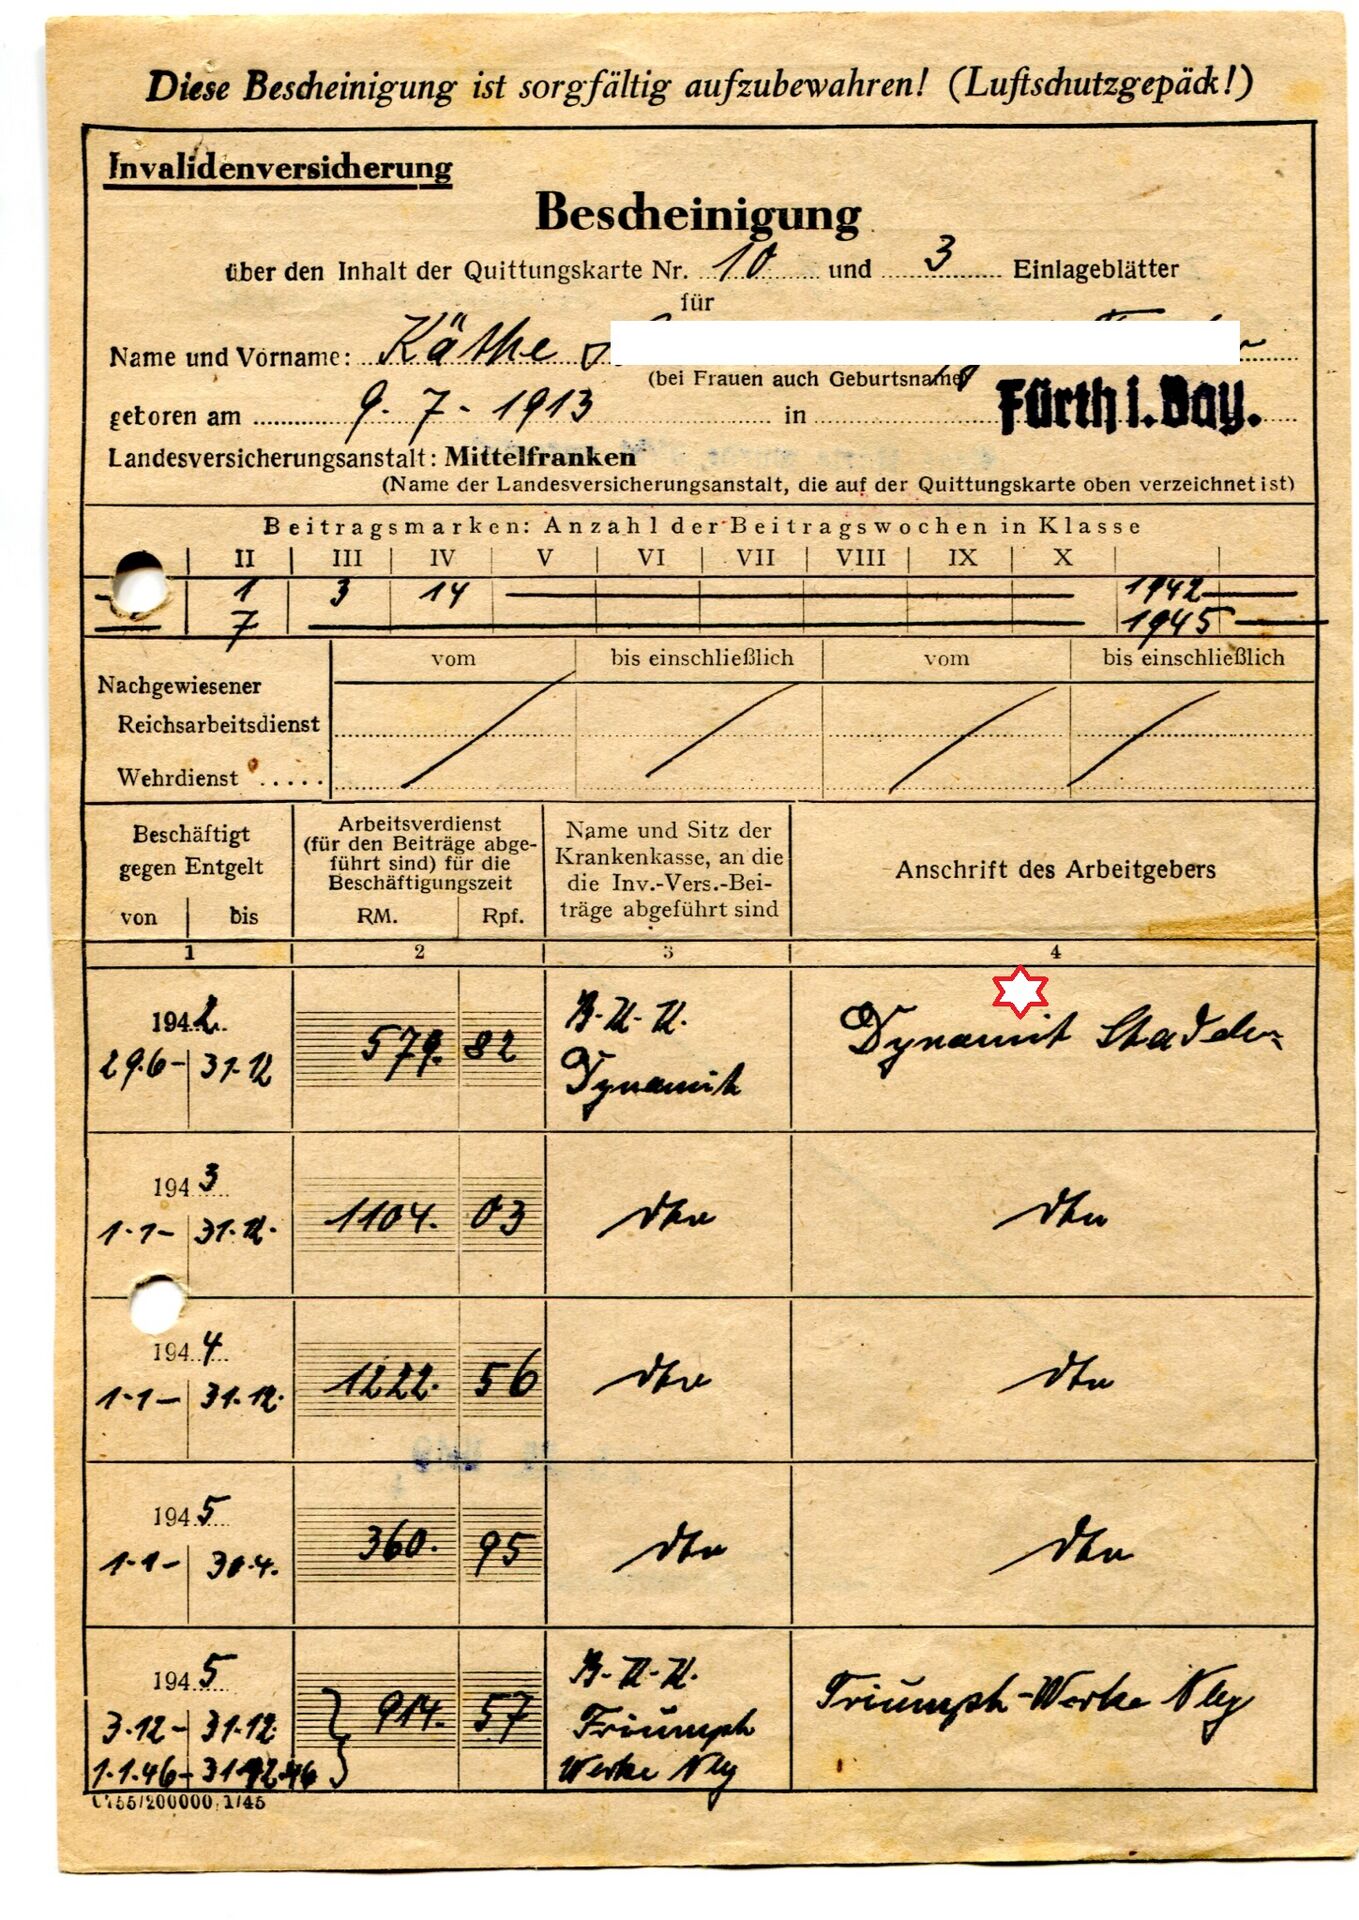 Diese Bescheinigung ist sorgfältig aufzubewahren! (Luftschutzgepäck!)
Invalidenversicherung
Bescheinigung
über den Inhalt der Quittungskarte Nr. 10 und 3 Einlageblätter
für
Name und Vorname: Käthe
(bei Frauen auch Geburtsname)
geboren am 9. 7. 1913 in Fürth i. Bay.
Landesversicherungsanstalt: Mittelfranken
(Name der Landesversicherungsanstalt, die auf der Quittungskarte oben verzeichnet ist)
Beitragsmarken: Anzahl der Beitragswochen in Klasse
II III IV V VI VII VIII IX X
1 3 14 1942
7 1945
vom bis einschließlich vom bis einschließlich
Nachgewiesener
Reichsarbeitsdienst
Wehrdienst .....
Beschäftigt gegen Entgelt
von bis
Arbeitsverdienst
(für den Beiträge abge-
führt sind) für die
Beschäftigungszeit
RM. Rpf.
Name und Sitz der
Krankenkasse, an die
die Inv.-Vers.-Bei-
träge abgeführt sind
Anschrift des Arbeitgebers
1 2 3 4
1942 B.K.K.
29.6- 31.12 579. 82 Dynamit Dynamit Stadeln
1943
1.1- 31.12. 1104. 03 dto dto
1944
1.1- 31.12. 1222. 56 dto dto
1945
1.1- 30.4. 360. 95 dto dto
1945 B.K.K.
3.12- 31.12. 914. 57 Triumph Triumph-Werke Nbg
1.1.46- 31.12.46 Werke Nbg
C 155/200000, 1/45